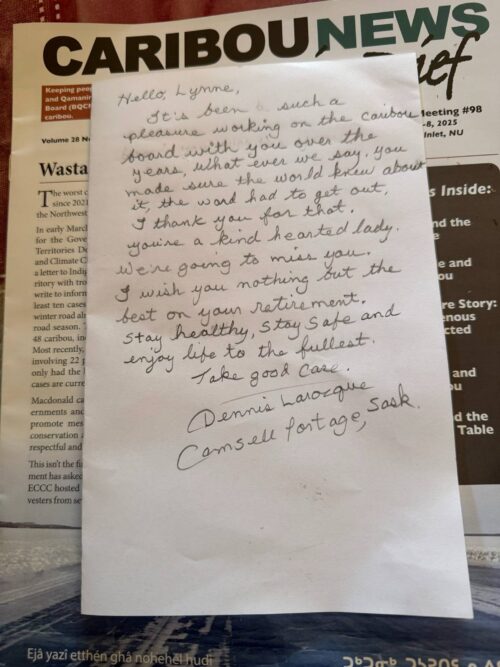 CARIBOU NEWS
Brief
Keeping peop
and Qamanir
Board (BQCM
caribou.
Meeting #98
-8, 2025
Inlet, NU
Volume 28 N
Wasta
The worst c
since 2021
the Northwest
In early March
for the Gover
Territories De
and Climate C
a letter to Indig
ritory with tro
write to inform
least ten cases
winter road alo
road season.
48 caribou, in
Most recently,
involving 22 p
only had the
cases are curre
Macdonald ca
ernments and
promote mes
conservation
respectful and
This isn't the fi
ment has asked
ECCC hosted
vesters from se
Hello, Lynne,
It's been a such a
pleasure working on the caribou
board with you over the
years, what ever we say, you
made sure the world knew about
it, the word had to get out,
I thank you for that.
you're a kind hearted lady.
We're going to miss you.
I wish you nothing but the
best on your retirement.
Stay healthy, stay safe and
enjoy life to the fullest.
Take good care.
Dennis Larocque
Camsell Portage, Sask.
s Inside:
nd the
e and
ou
re Story:
enous
cted
and
ou
d the
Table
Ejá yazí etthén ghą nohehel hudi